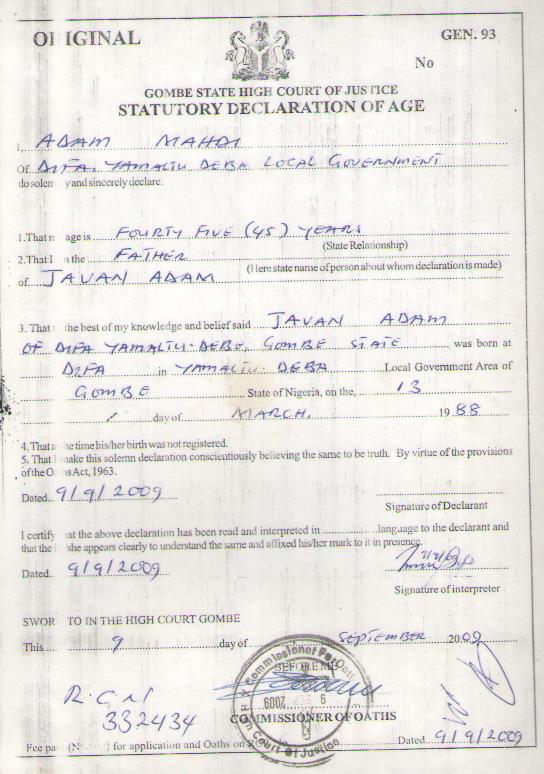 ORIGINAL GEN. 93
No
GOMBE STATE HIGH COURT OF JUSTICE
STATUTORY DECLARATION OF AGE
I, ADAM MAHDI
Of DIFA, YAMALTU DEBA LOCAL GOVERNMENT
do solen y and sincerely declare:
1. That n age is FOURTY FIVE (45) YEARS
(State Relationship)
2. That I n the FATHER
(Here state name of person about whom declaration is made)
of JAVAN ADAM
3. That the best of my knowledge and belief said JAVAN ADAM
OF DIFA YAMALTU-DEBE, GOMBE STATE was born at
DIFA in YAMALTU-DEBA Local Government Area of
GOMBE State of Nigeria, on the, 13
day of MARCH. 1988
4. That a he time his/her birth was not registered.
5. That I make this solemn declaration conscientiously believing the same to be truth. By virtue of the provisions
of the O hs Act, 1963.
Dated 9/9/2009
Signature of Declarant
I certify at the above declaration has been read and interpreted in language to the declarant and
that the she appears clearly to understand the same and affixed his/her mark to it in presence.
Dated 9/9/2009
Signature of interpreter
SWOR TO IN THE HIGH COURT GOMBE
This 9 day of SEPTEMBER 2009
BEFORE ME
R.C.N
332434
COMMISSIONER OF OATHS
Fee pa (N ) for application and Oaths on R Dated 9/9/2009
Commissioner For Oath
Court of Justice